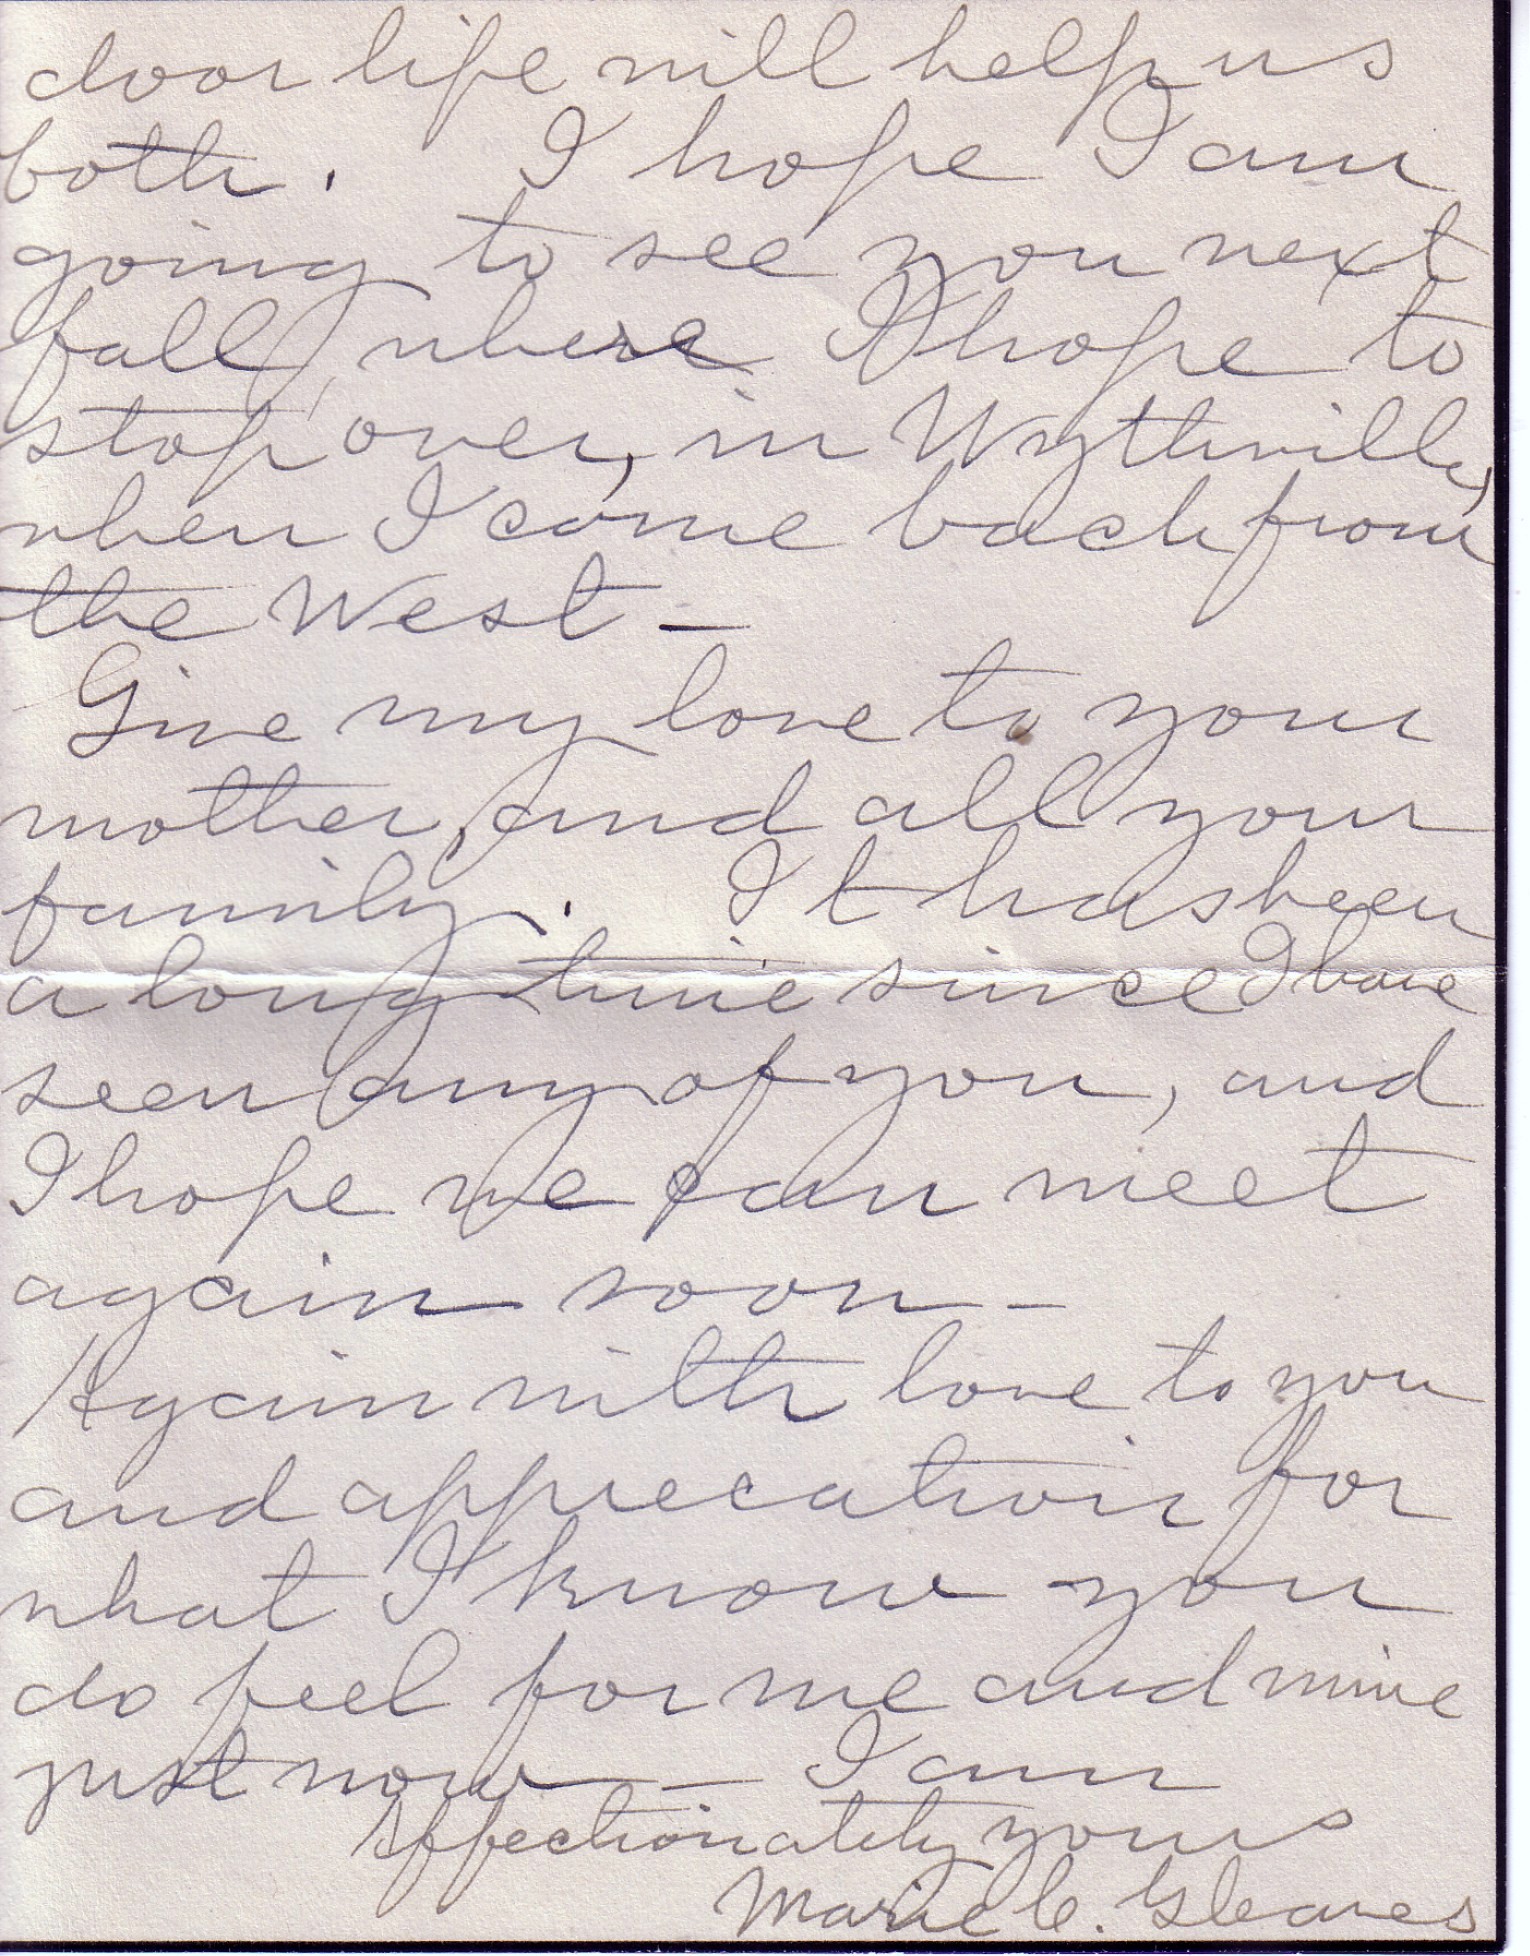 door life will help us
both. I hope I am
going to see you next
fall, where I hope to
stop over, in Wytheville,
when I come back from
the West –
Give my love to your
mother, and all your
family. It has been
a long time since I have
seen any of you, and
I hope we can meet
again soon –
Again with love to you
and apprecation for
what I know you
do feel for me and mine
just now – I am
Affectionately yours
Marie C. Gleaves